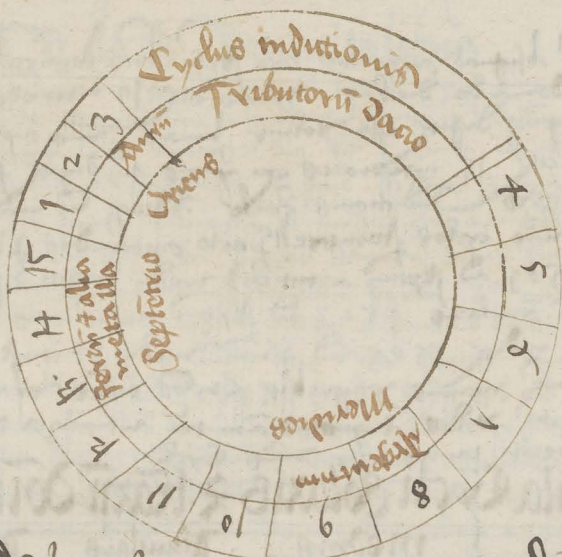 Cyclus indictionis
Tributorũ dacio
Aurũ
Oriens
Septẽtrio
Ferrũ & alia
metalla
Meridies
Argentum
4
5
6
7
8
9
10
11
12
13
14
15
1
2
3